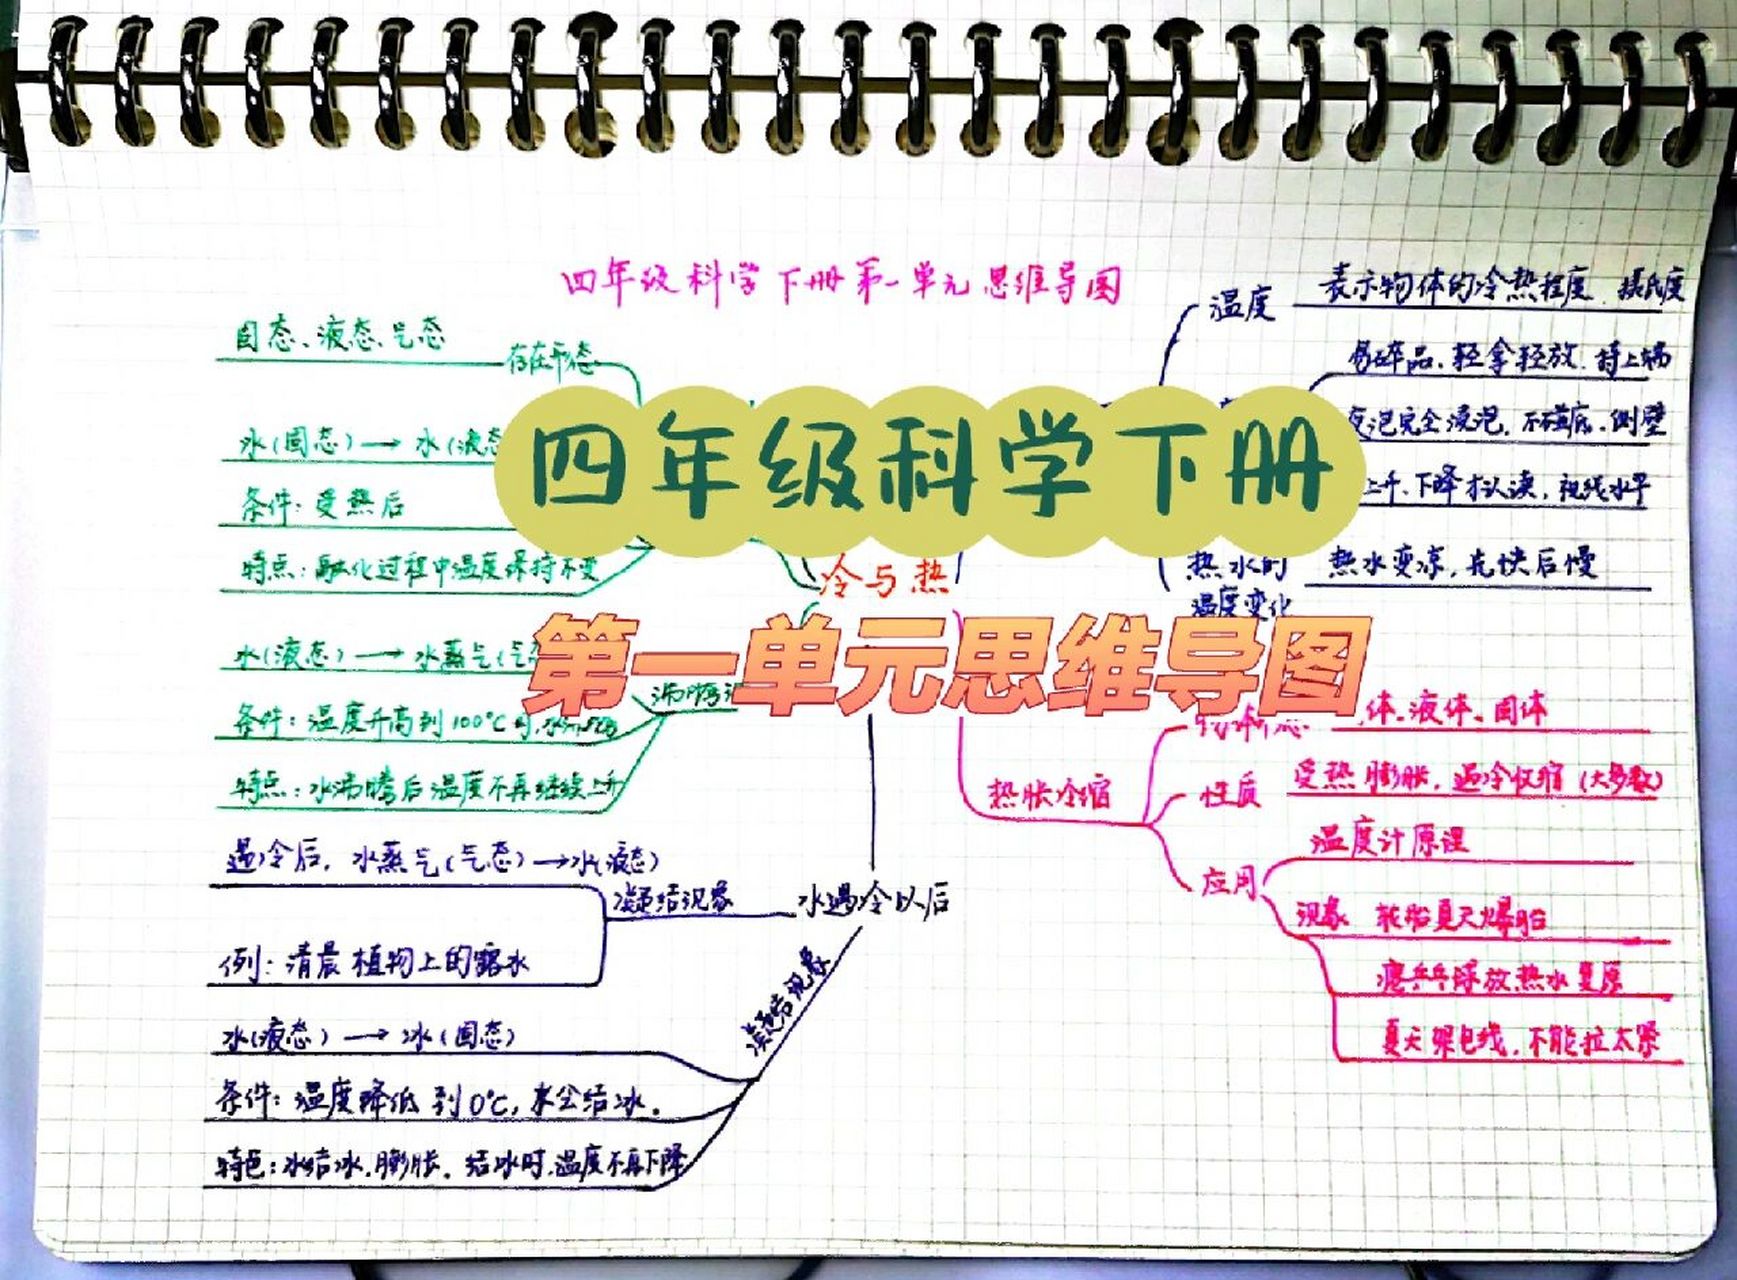 四年级科学下册第一单元思维导图
四年级科学下册
第一单元思维导图
冷与热
固态、液态、气态
存在形态
冰(固态)→水(液态
条件:受热后
特点:融化过程中温度保持不变
水(液态)→水蒸气(气
沸腾
条件:温度升高到100℃时,水沸腾
特点:水沸腾后温度不再继续上升
遇冷后,水蒸气(气态)→水(液态)
凝结现象
水遇冷以后
例:清晨植物上的露水
凝结现象
水(液态)→冰(固态)
条件:温度降低到0℃,来会结冰.
特色:水结冰,膨胀.结冰时,温度不再下降
温度
表示物体的冷热程度 摄氏度
易碎品、轻拿轻放.持上端
泡完全浸泡,不碰底、侧壁
上升、下降才认读,视线水平
热水的
温度变化
热水变凉,先快后慢
热胀冷缩
体、液体、固体
性质
受热膨胀,遇冷收缩(大多数)
应用
温度计原理
现象 轮胎夏天爆胎
瘪乒乓球放热水复原
夏天架电线,不能拉太紧